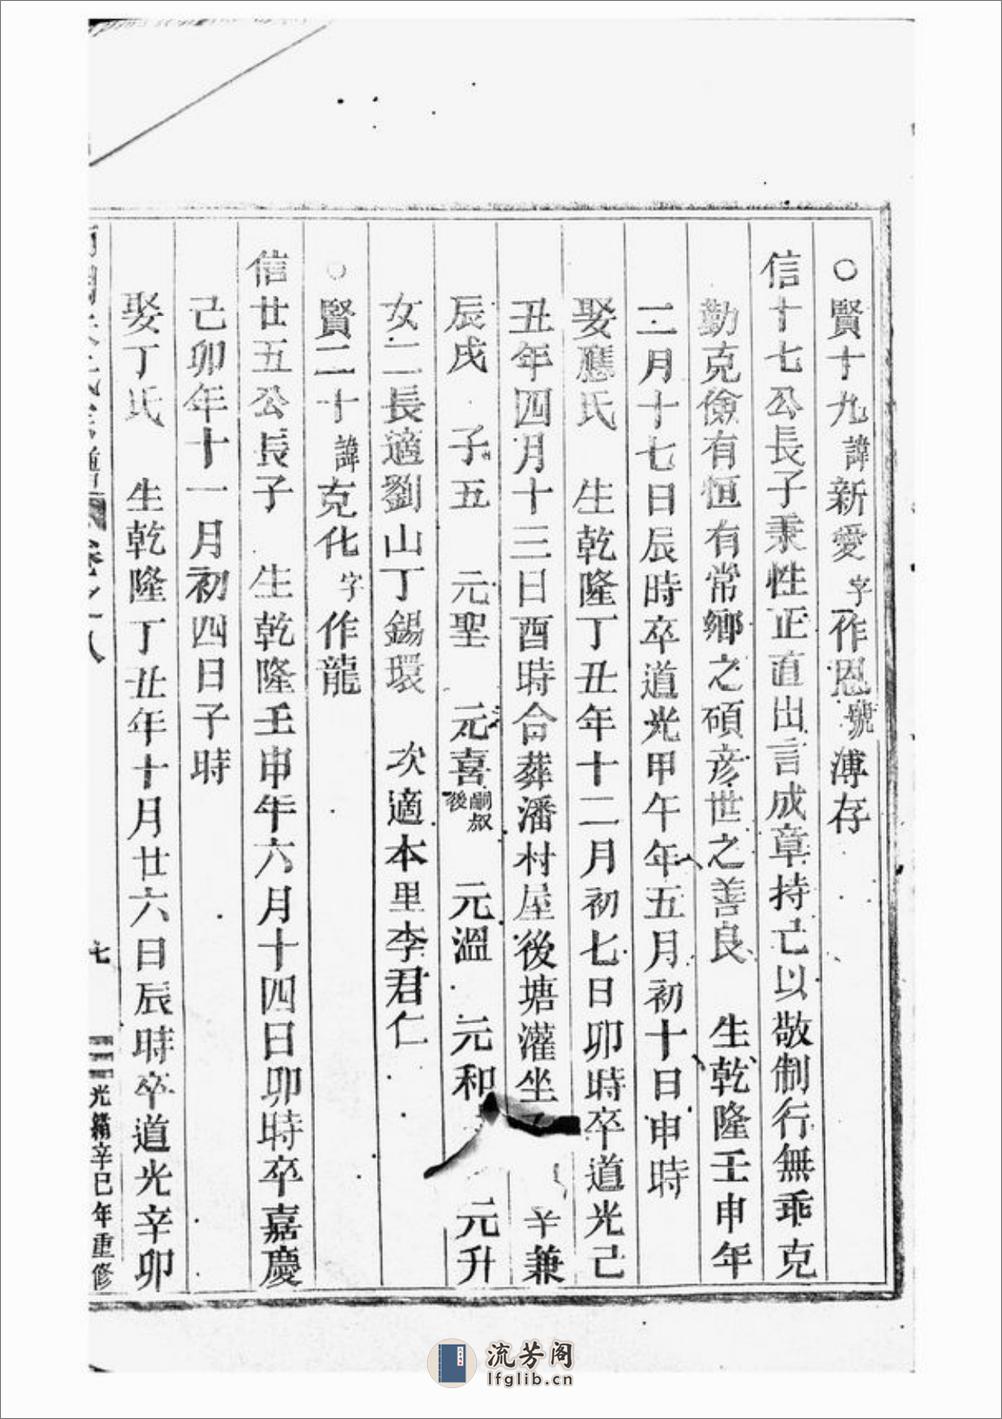 ○賢十九諱新愛字作恩號溥存
信十七公長子秉性正直出言成章持己以敬制行無乖克
勤克儉有恒有常鄉之碩彦世之善良 生乾隆壬申年
二月十七日辰時卒道光甲午年五月初十日申時
娶應氏 生乾隆丁丑年十二月初七日卯時卒道光己
丑年四月十三日酉時合葬潘村屋後塘灌坐 兼
辰戌 子五 元聖 元喜嗣叔後 元溫 元和 元升
女二長適劉山丁錫環 次適本里李君仁
○賢二十諱克化字作龍
信廿五公長子 生乾隆壬申年六月十四日卯時卒嘉慶
己卯年十一月初四日子時
娶丁氏 生乾隆丁丑年十月廿六日辰時卒道光辛卯
卷之八 七 光緒辛巳年重修
流芳阁
lfglib.cn